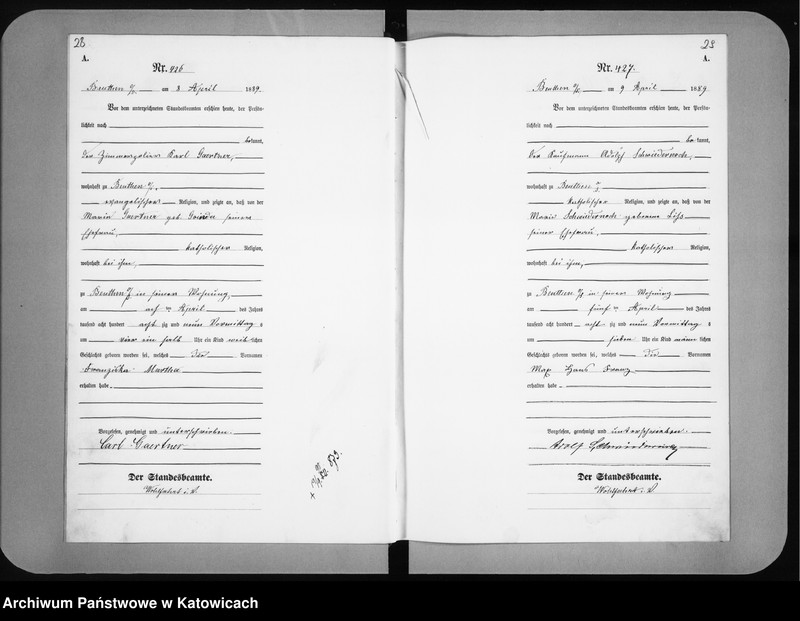 28
A.
Nr. 426
Beuthen O/S am 8 April 1889
Vor dem unterzeichneten Standesbeamten erschien heute, der Persön-
lichkeit nach
bekannt,
der Zimmerpolier Karl Gaertner,
wohnhaft zu Beuthen O/S,
evangelischer Religion, und zeigte an, daß von der
Marie Gaertner geb. seiner
Ehefrau,
katholischer Religion,
wohnhaft bei ihm,
zu Beuthen O/S in seiner Wohnung,
am ten April des Jahres
tausend acht hundert acht zig und neun Vormittag s
um vier ein halb Uhr ein Kind weib lichen
Geschlechts geboren worden sei, welches die Vornamen
Franziska Martha
erhalten habe
Vorgelesen, genehmigt und unterschrieben.
Carl Gaertner
Der Standesbeamte.
i. V.
23
A.
Nr. 427.
Beuthen O/S am 9 April 1889
Vor dem unterzeichneten Standesbeamten erschien heute, der Persön-
lichkeit nach
bekannt,
der Kaufmann Adolf
wohnhaft zu Beuthen O/S
katholischer Religion, und zeigte an, daß von der
Marie geborene
seiner Ehefrau,
katholischer Religion,
wohnhaft bei ihm,
zu Beuthen O/S in seiner Wohnung
am fünf ten April des Jahres
tausend acht hundert acht zig und neun Vormittag s
um sieben Uhr ein Kind männ lichen
Geschlechts geboren worden sei, welches die Vornamen
Max Hans Franz
erhalten habe
Vorgelesen, genehmigt und unterschrieben.
Adolf
Der Standesbeamte.
i. V.
Archiwum Państwowe w Katowicach